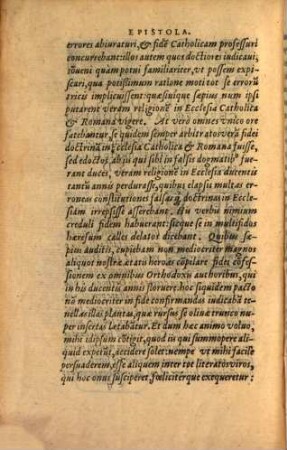 EPISTOLA.
errores abiuraturi, & fidē Catholicam professuri
concurrebant: illos autem quos doctiores iudicaui,
cōueni quam potui familiariter, ut possem expi-
scari, qua potissimum ratione moti tot se errorū
tricis implicuissent: quæsiuique sæpius num ipsi
putarent veram religionē in Ecclesia Catholica
& Romana vigere. At verò omnes vnico ore
fatebantur, se quidem semper arbitratos verā fidei
doctrinā in Ecclesia Catholica & Romana fuisse,
sed edoctos ab iis qui sibi in falsis dogmatib' fue-
rant duces, veram religionē in Ecclesia ducentis
tantū annis perdurasse, quibus elapsis multas er-
roneas constitutiones falsasq; doctrinas in Eccle-
siam irrepsisse asserebant. At verbis nimium
creduli fidem habuerant: sicque se in multifidos
hæresum calles delatos dicebant. Quibus sæ-
pius auditis, cupiebam non mediocriter magnos
aliquot nostræ ætati heroas copilare fidei cōfes-
sionem ex omnibus Orthodoxis authoribus, qui
in his ducentis annis floruere. hoc siquidem pacto
nō mediocriter in fide confirmandas iudicabā te-
nellas illas plantas, quæ rursus se oliuæ truncis nu-
per insertas lætabātur. Et dum hæc animo voluo,
mihi idipsum cōtigit, quod iis qui summopere ali-
quid expetūt, accidere solet: nempe vt mihi facile
persuaderem, esse aliquem inter tot literatos viros,
qui hoc onus susciperet, fœliciterque exequeretur: